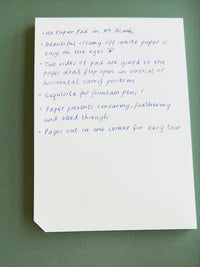 • A5 Paper Pad in A5 Blank
• Beautiful creamy off-white paper is
easy on the eyes
• Two sides of pad are glued so the
pages dont flop open in vertical or
horizontal carry position
• Exquisite for fountain pens!
• Paper prevents smearing, feathering
and bleed through
• Pages cut in one corner for easy tear